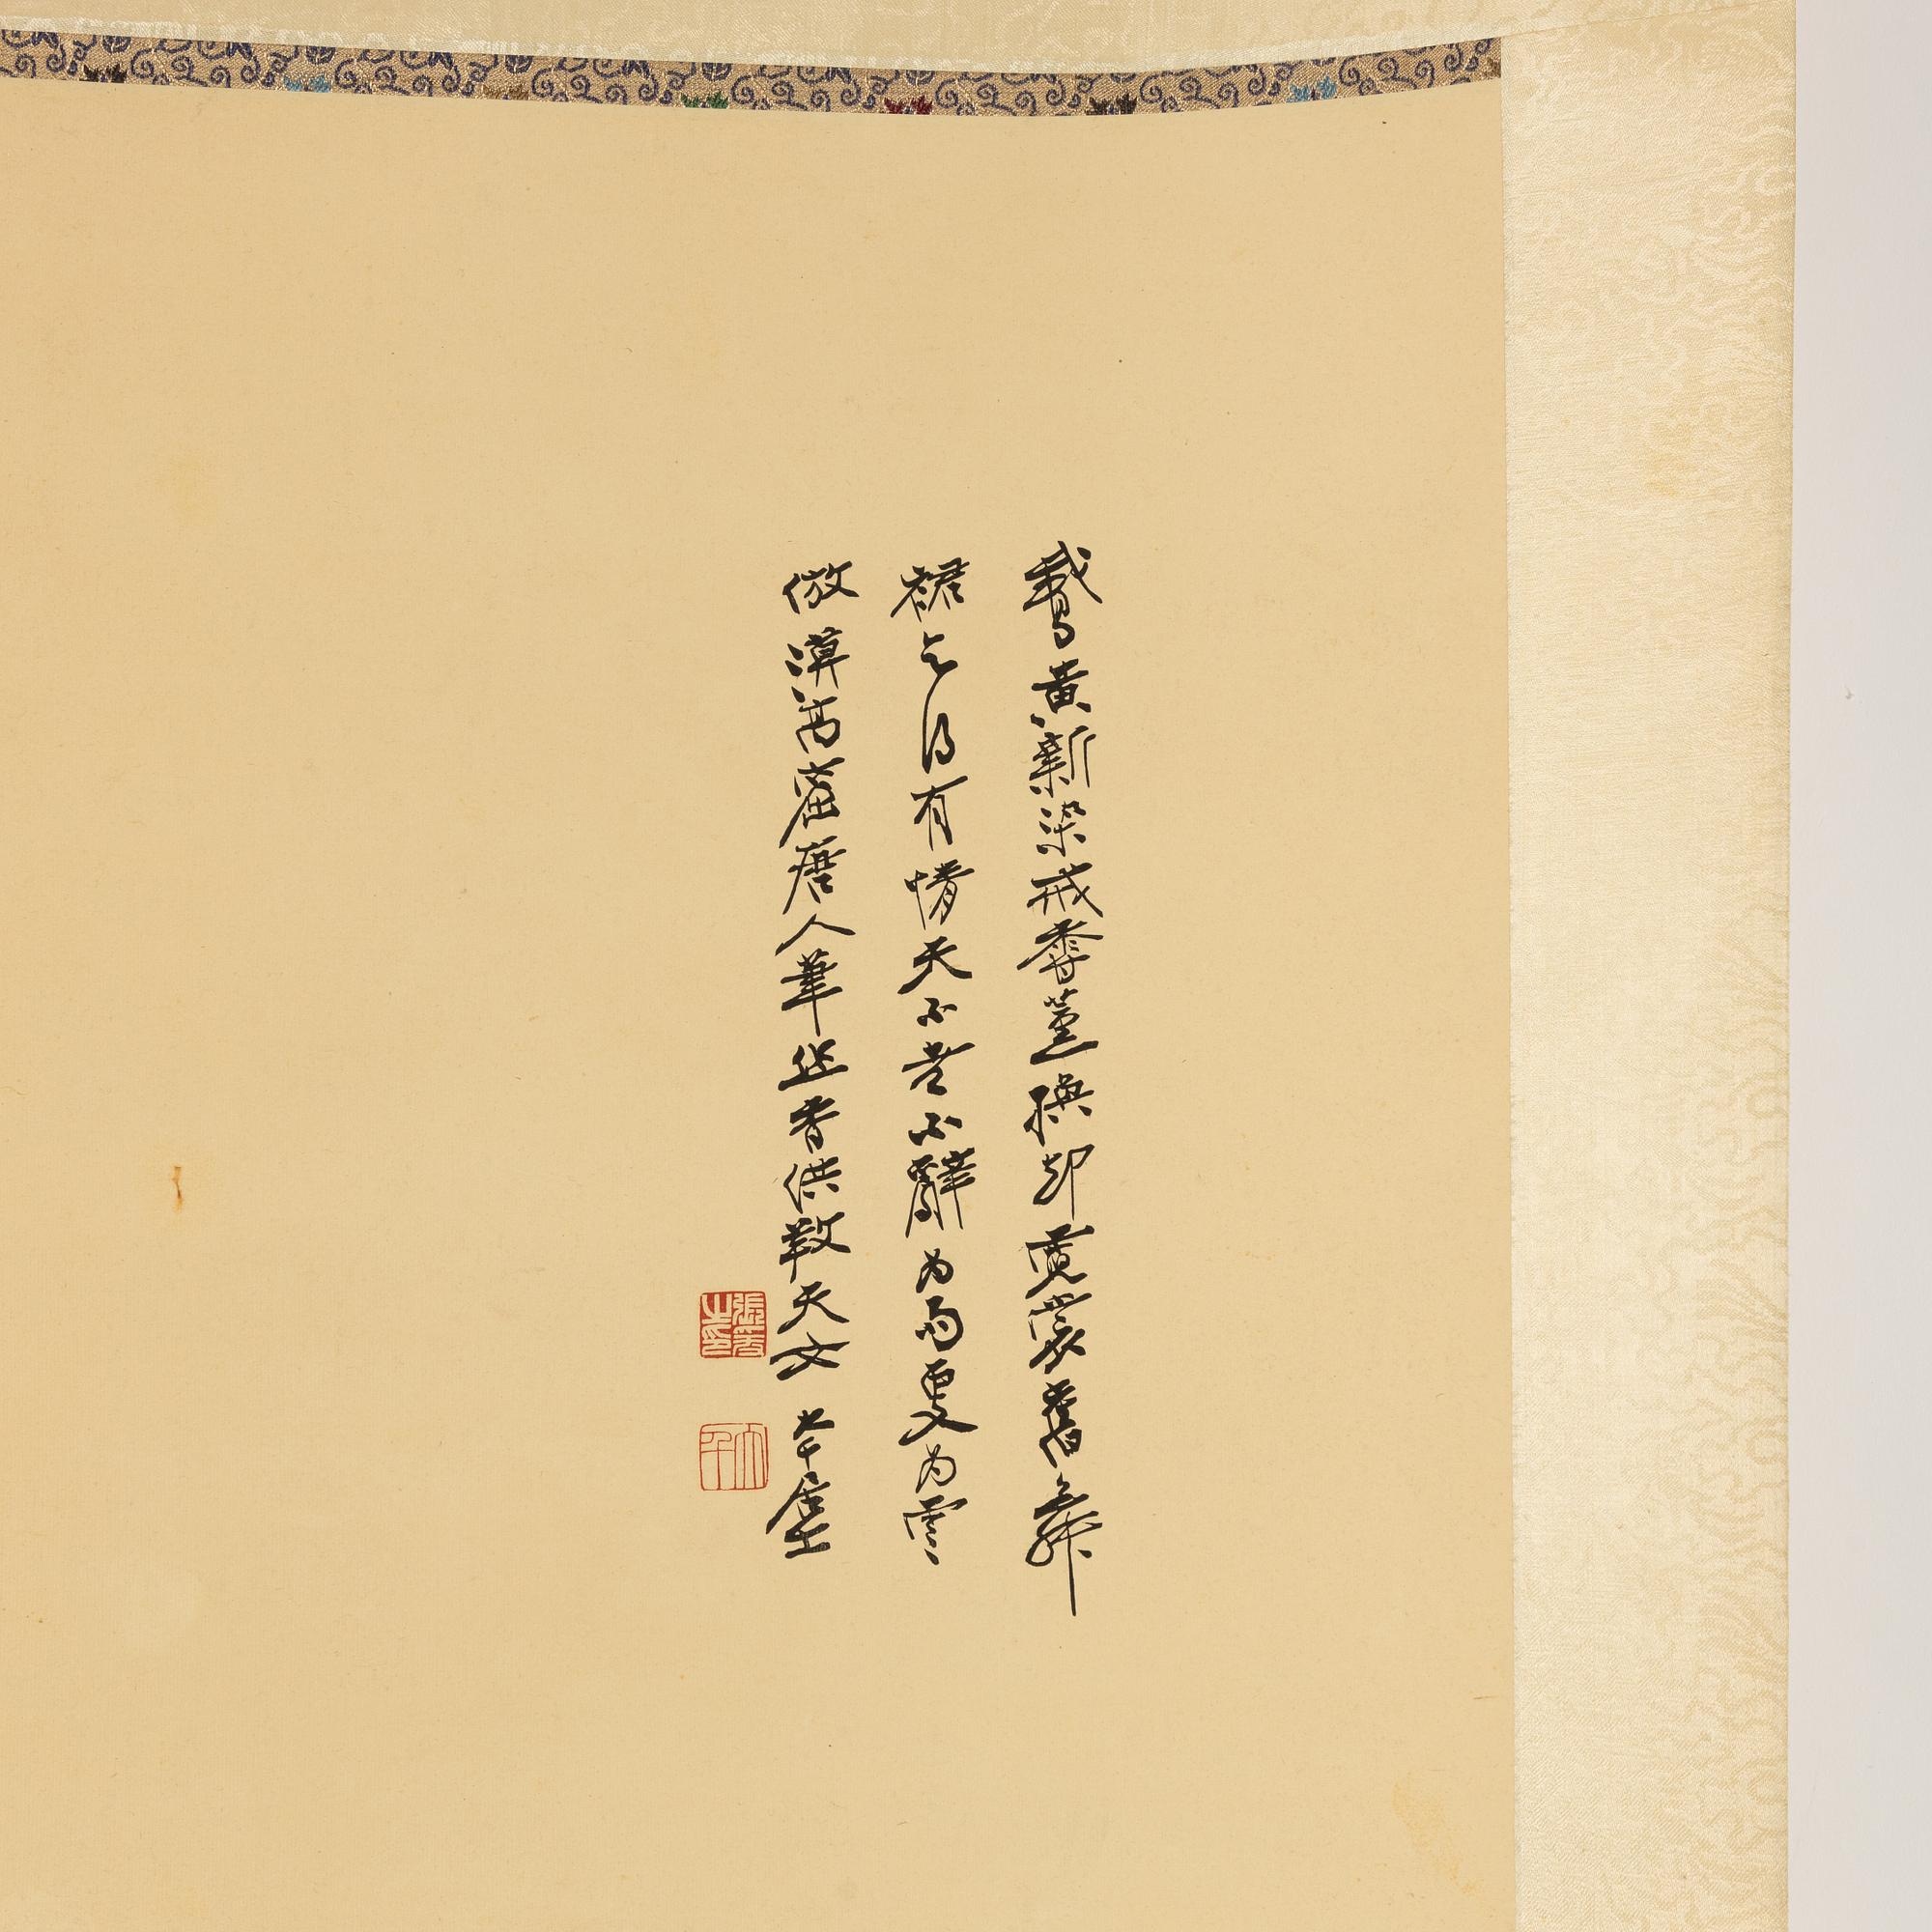 鵝黃新染戒香薰換卻霓裳舊舞
裙乞得有情天不老不辭為雨更為雲
倣漠高窟唐人筆香供天大千居士
張爰之印
大千